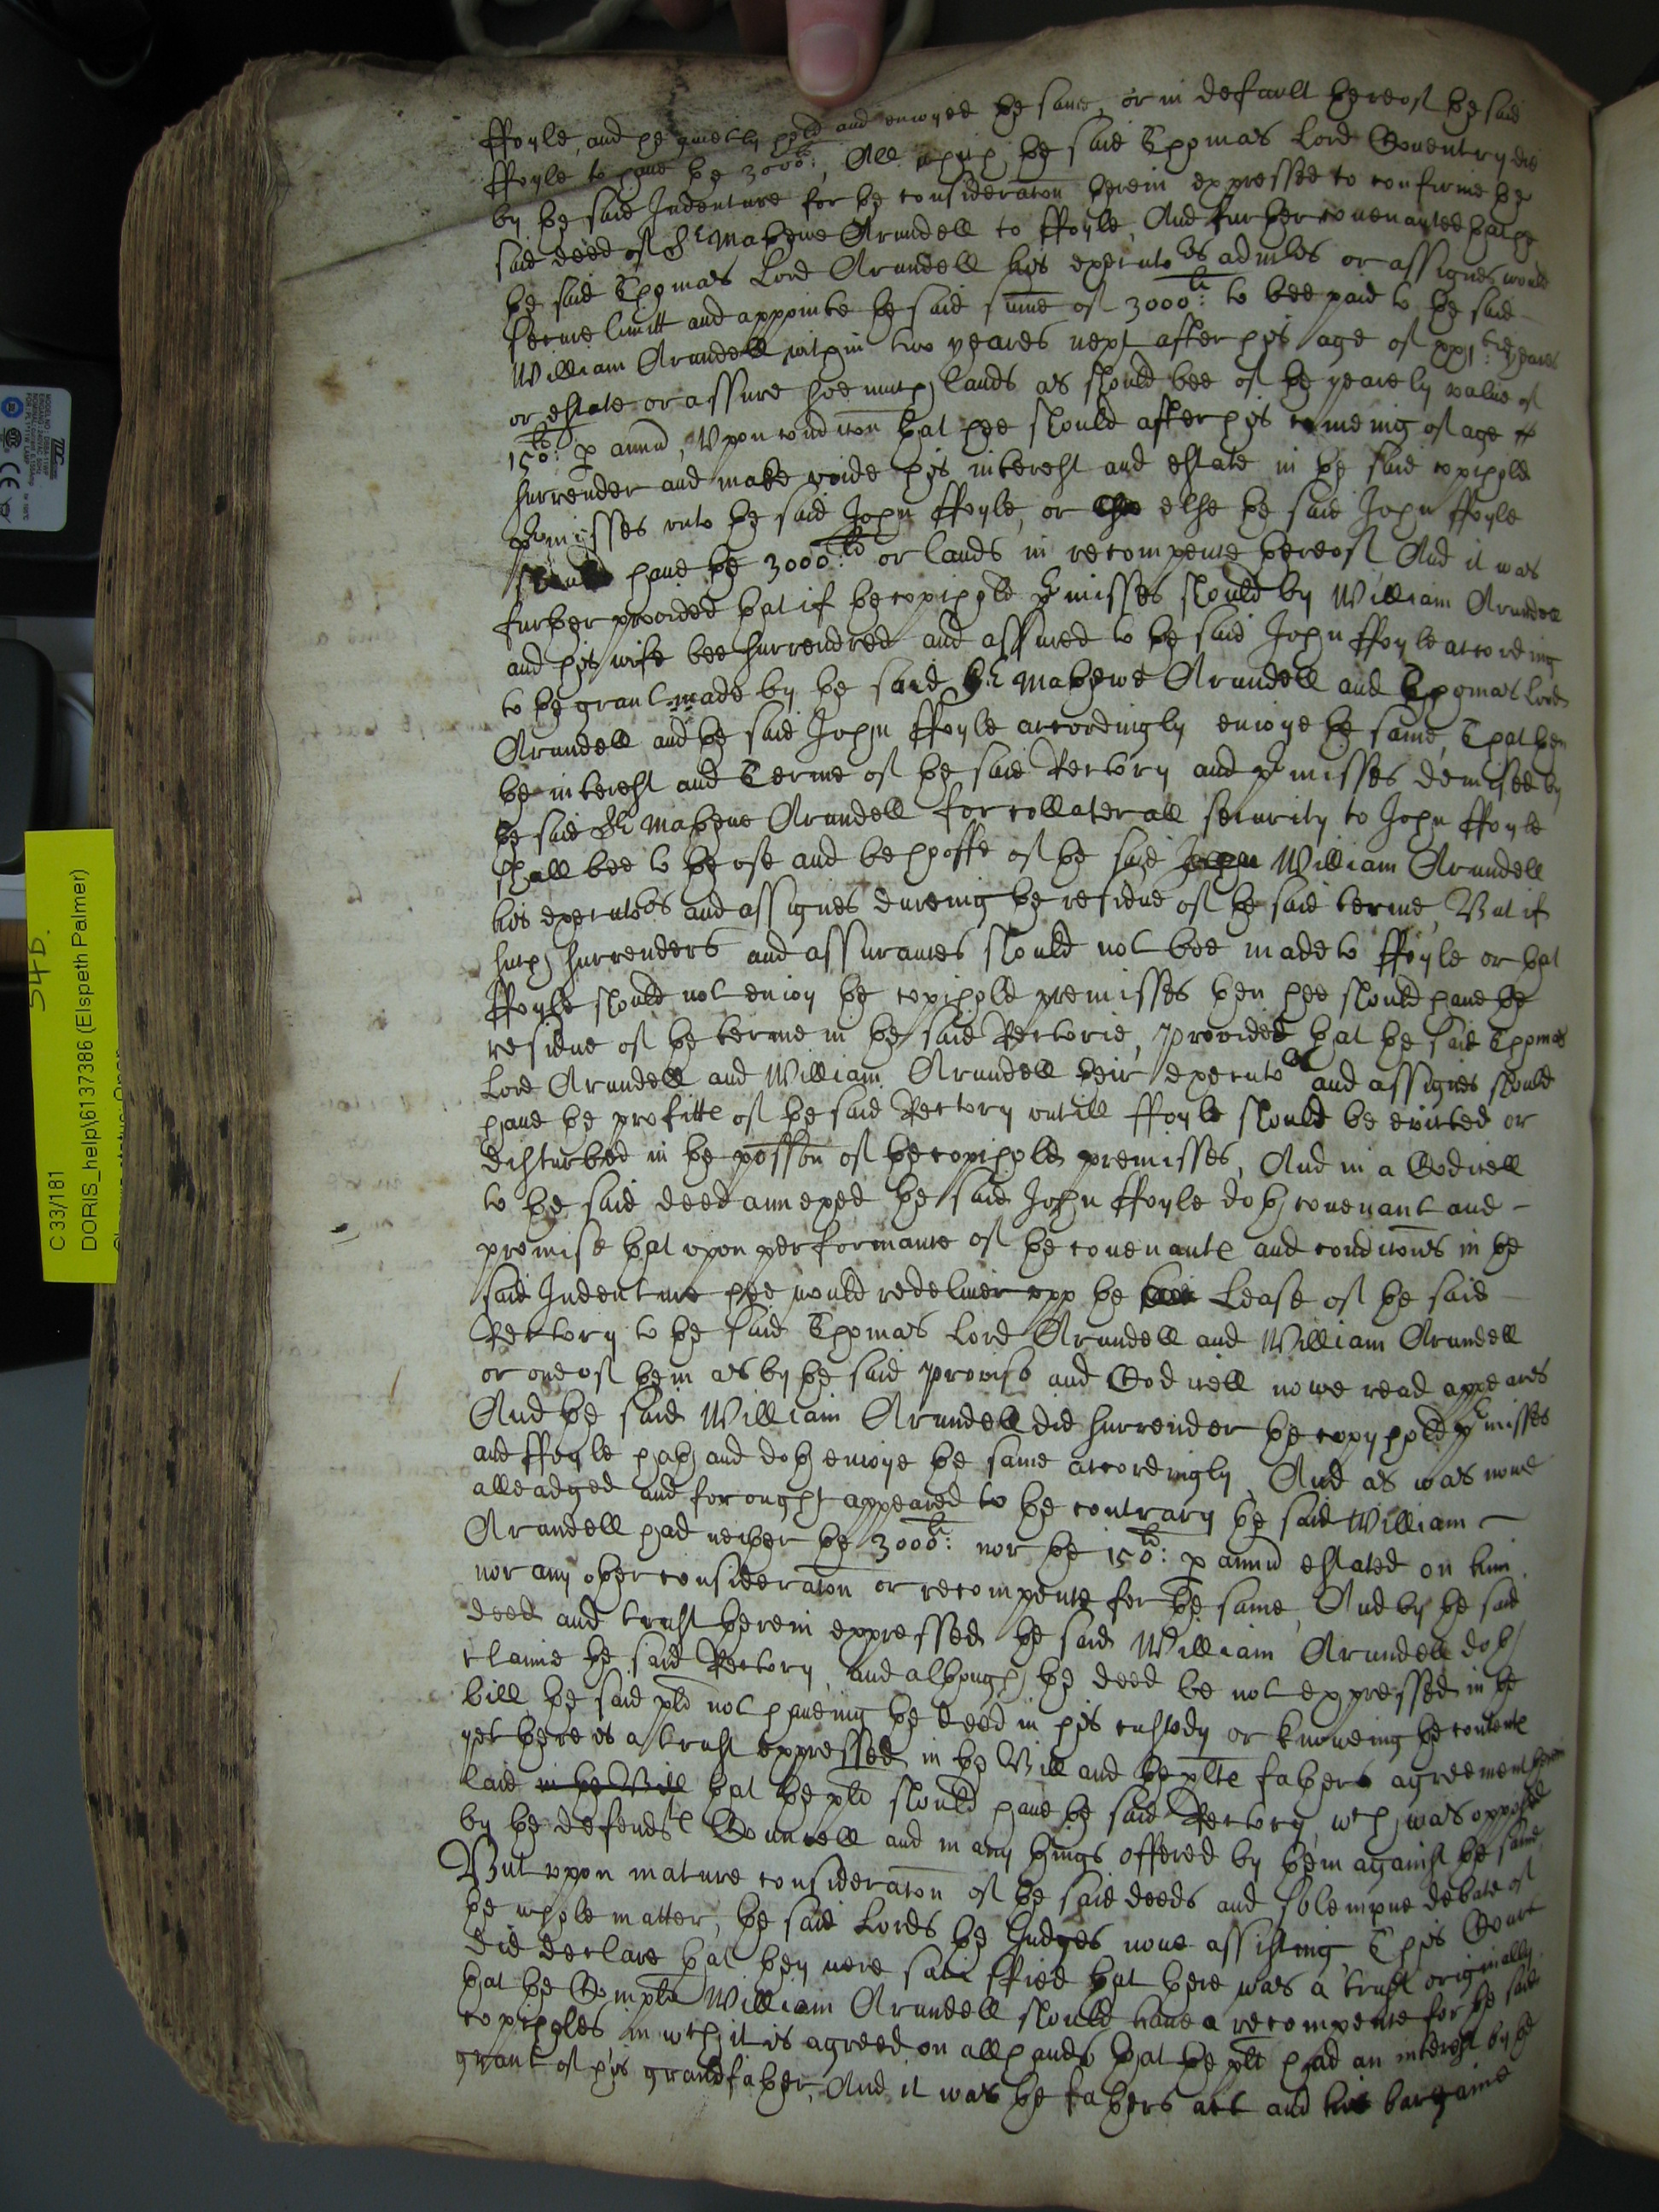 ffoyle, and he quietly held and enioyed the same, or in default thereof the said
ffoyle to haue the 3000li:, All which the said Thomas Lord Couentry did
by the said Indenture for the consideracon therein expressed to confirme the
said deed of Sr Mathewe Arundell to ffoyle, And further couenanted that he
the said Thomas Lord Arundell his executors admrs or assignes would
secure limitt and appointe the said sume of 3000li: to bee paid to the said
William Arundell within two yeares next after his age of xxjtie: yeares
or estate or assure soe much lands as should bee of the yearely value of
150li: p annu, Vpon condicon that hee should after his comeing of age
surrender and make voide his interest and estate in the said copihold
premisses vnto the said John ffoyle, or else the said John ffoyle
should haue the 3000li: or lands in recompence thereof, And it was
further provided that if the copihold premisses should by William Arundell
and his wife bee surrendred and assured to the said John ffoyle according
to the grant made by the said Sr Mathewe Arundell and Thomas Lord
Arundell and the said John ffoyle accordingly enioye the same, That then
the interest and Terme of the said Rectory and premisses demised by
the said Sr Mathewe Arundell for collaterall security to John ffoyle
shall bee to the vse and behooffe of the said John William Arundell
his executors and assignes dureing the residue of the said terme, But if
such surrenders and assurances should not bee made to ffoyle or that
ffoyle should not enioy the copihold premisses then hee should haue the
residue of the terme in the said Rectorie, provided that the said Thomas
Lord Arundell and William Arundell their executors and assignes should
haue the profitts of the said Rectory vntill ffoyle should be evicted or
disturbed in the possion of the copihold premisses, And in a Codicell
to the said deed annexed the said John ffoyle doth couenant and
promise that vpon performance of the couenants and condicons in the
said Indenture hee would redeliuer vpp the Lease of the said
Rectory to the said Thomas Lord Arundell and William Arundell
or one of them as by the said proviso and Codicell nowe read appeares
And the said William Arundell did surrender the copyhold premisses
and ffoyle hath and doth enioye the same accordingly, And as was nowe
alleadged and for ought appeared to the contrary the said William
Arundell had neither the 3000li: nor the 150li: p annu estated on him
nor any other consideracon or recompence for the same, And by the said
deed and trust therein expressed the said William Arundell doth
claime the said Rectory, and although the deed be not expressed in the
bill, the said plt not haueing the deed in his custody or knoweing the contents
yet there is a trust expressed in the Bill and the plts fathers agreement therein
laid in the Bill that the plt should haue the said Rectory, wch was opposed
by the defendts Councell and many things offered by them against the same
But vpon mature consideracon of the said deeds and solempne debate of
the whole matter, the said Lords the Judges nowe assisting This Court
did declare that they were satisffied that there was a trust originally
that the Complt William Arundell should haue a recompence for the said
copiholds in wch it is agreed on all hands that the plt had an interest by the
grant of his grandfather, And it was the fathers act and his bargaine
C 33/181
DORIS_help\6137386 (Elspeth Palmer)